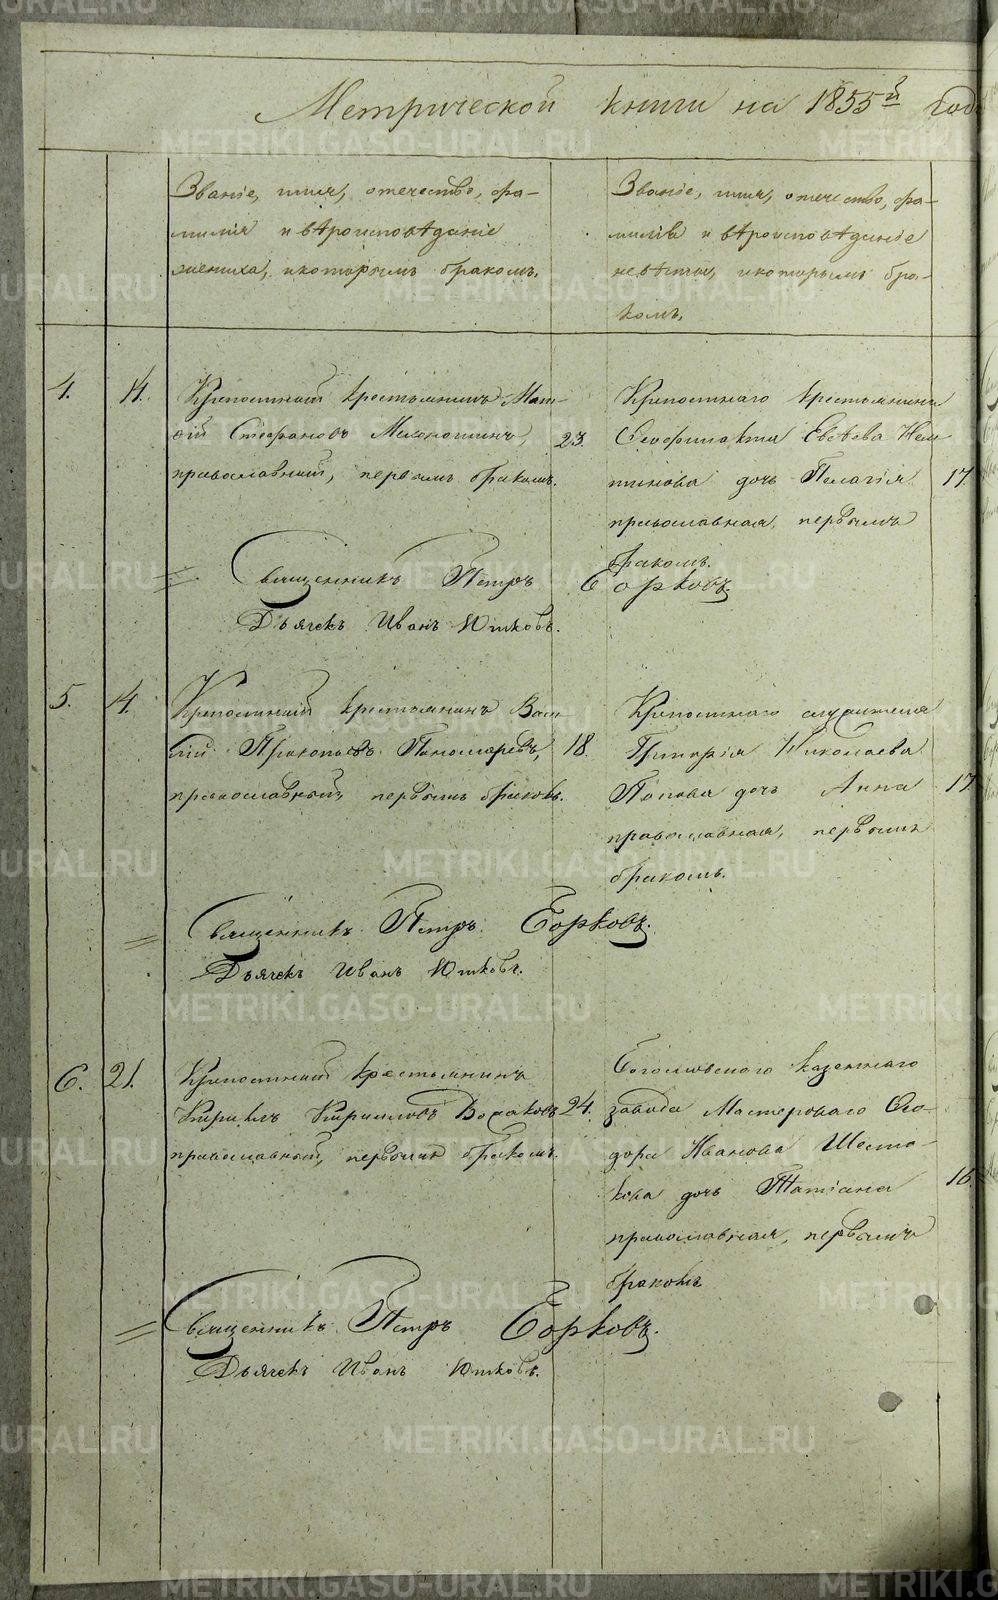 Метрической книги на 1855й годъ
Званіе, имя, отечество, фа-
милія и вѣроисповѣданіе
жениха, и которымъ бракомъ.
Званіе, имя, отечество, фа-
милія и вѣроисповѣданіе
невѣсты, и которымъ бра-
комъ.
4. 14. Крѣпостный крестьянинъ Мат-
ѳій Стефановъ
23.
православный, первымъ бракомъ.
Крѣпостнаго крестьянина
Ѳеофилакта Евсѣева
дочь Пелагія 17.
православная, первымъ
бракомъ.
Священникъ Петръ Борковъ.
Дьячекъ Иванъ Юшковъ.
5. 14. Крѣпостный крестьянинъ Васи-
лій Прокопьевъ Пономаревъ, 18.
православный, первымъ бракомъ.
Крѣпостнаго служителя
Григорія Николаева
Попова дочь Анна 17.
православная, первымъ
бракомъ.
Священникъ Петръ Борковъ.
Дьячекъ Иванъ Юшковъ.
6. 21. Крѣпостный крестьянинъ
Кирилъ Кирилловъ 24.
православный, первымъ бракомъ.
Богословскаго казеннаго
завода Мастероваго Ѳео-
дора Иванова Шеста-
кова дочь Татіана 16.
православная, первымъ
бракомъ
Священникъ Петръ Борковъ.
Дьячекъ Иванъ Юшковъ.
METRIKI.GASO-URAL.RU